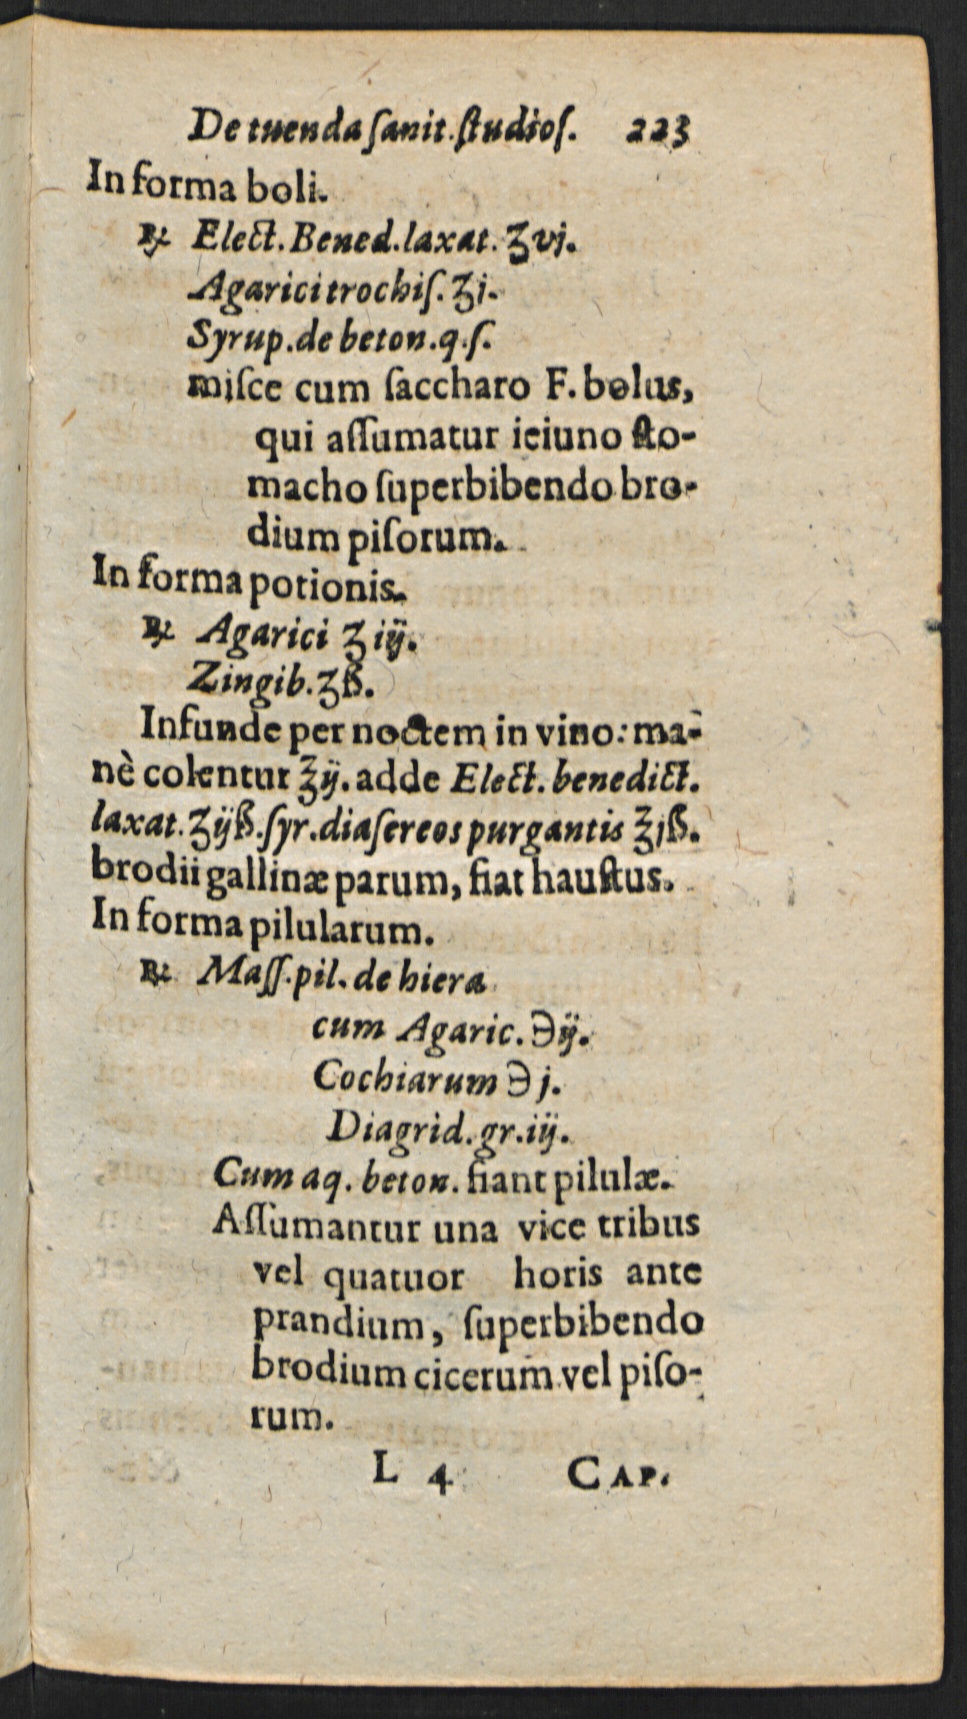 De tuenda ſanit. ſtudioſ. 223
In forma boli.
℞ Elect. Bened. laxat. ʒvj.
Agarici trochiſ. ʒj.
Syrup. de beton. q. ſ.
miſce cum ſaccharo F. bolus,
qui aſſumatur ieiuno ſto-
macho ſuperbibendo bro-
dium piſorum.
In forma potionis.
℞ Agarici ʒ iij.
Zingib. ʒß.
Infunde per noctem in vino: ma-
nè colentur ℥ij. adde Elect. benedict.
laxat. ʒijß. ſyr. diaſereos purgantis ℥jß.
brodii gallinæ parum, fiat hauſtus.
In forma pilularum.
℞ Maſſ. pil. de hiera
cum Agaric. ℈ij.
Cochiarum ℈ j.
Diagrid. gr. iij.
Cum aq. beton. fiant pilulæ.
Aſſumantur una vice tribus
vel quatuor horis ante
prandium, ſuperbibendo
brodium cicerum vel piſo-
rum.
L 4 CAP.